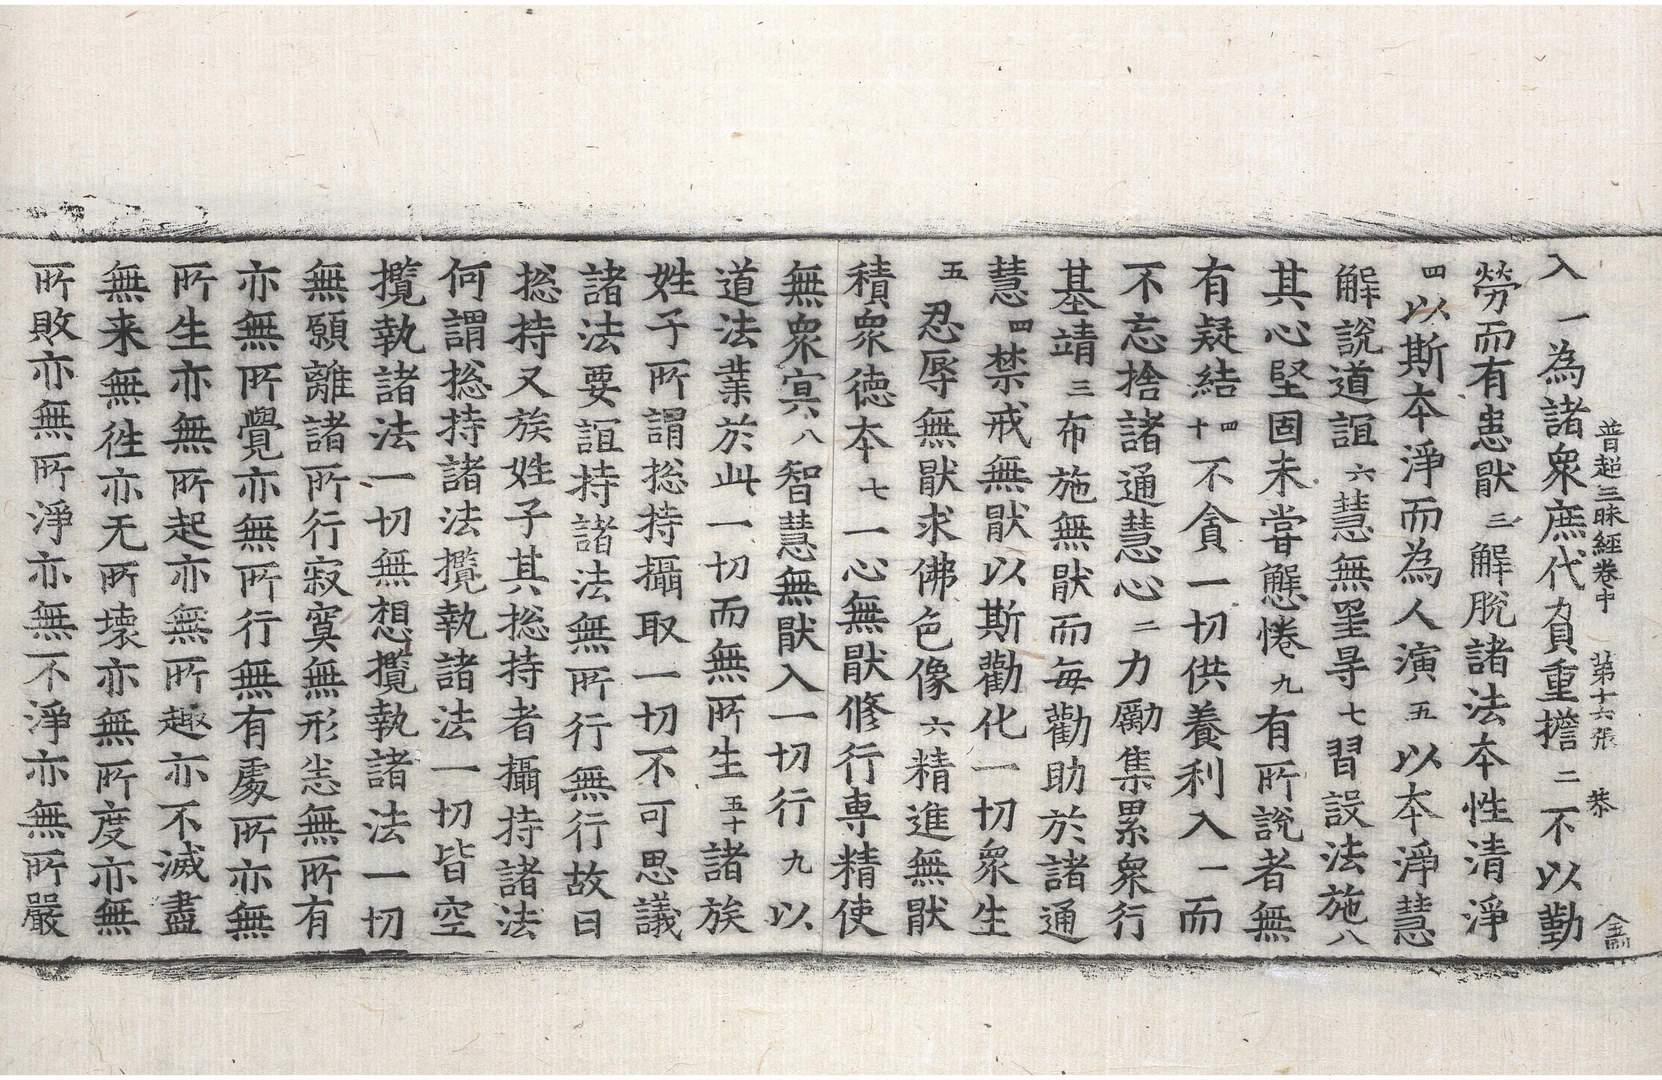 普超三昧經卷中　第十六張　恭
入一為諸衆庶代負重擔二不以勤
勞而有患猒三解脫諸法本性清淨
四以斯本淨而為人演五以本淨慧
解說道誼六慧無罣㝵七習設法施八
其心堅固未甞懈惓九有所說者無
有疑結十四不貪一切供養利入一而
不忘捨諸通慧心二力勵集累衆行
基靖三布施無猒而每勸助於諸通
慧四禁戒無猒以斯勸化一切衆生
五忍辱無猒求佛色像六精進無猒
積衆德本七一心無猒修行専精使
無衆㝠八智慧無猒入一切行九以
道法業於此一切而無所生五十諸族
姓子所謂捴持攝取一切不可思議
諸法要誼持諸法無所行無行故曰
捴持又族姓子其捴持者攝持諸法
何謂捴持諸法攬執諸法一切皆空
攬執諸法一切無想攬執諸法一切
無願離諸所行寂寞無形㤀無所有
亦無所覺亦無所行無有處所亦無
所生亦無所起亦無所趣亦不滅盡
無来無徃亦无所壞亦無所度亦無
所敗亦無所淨亦無不淨亦無所嚴